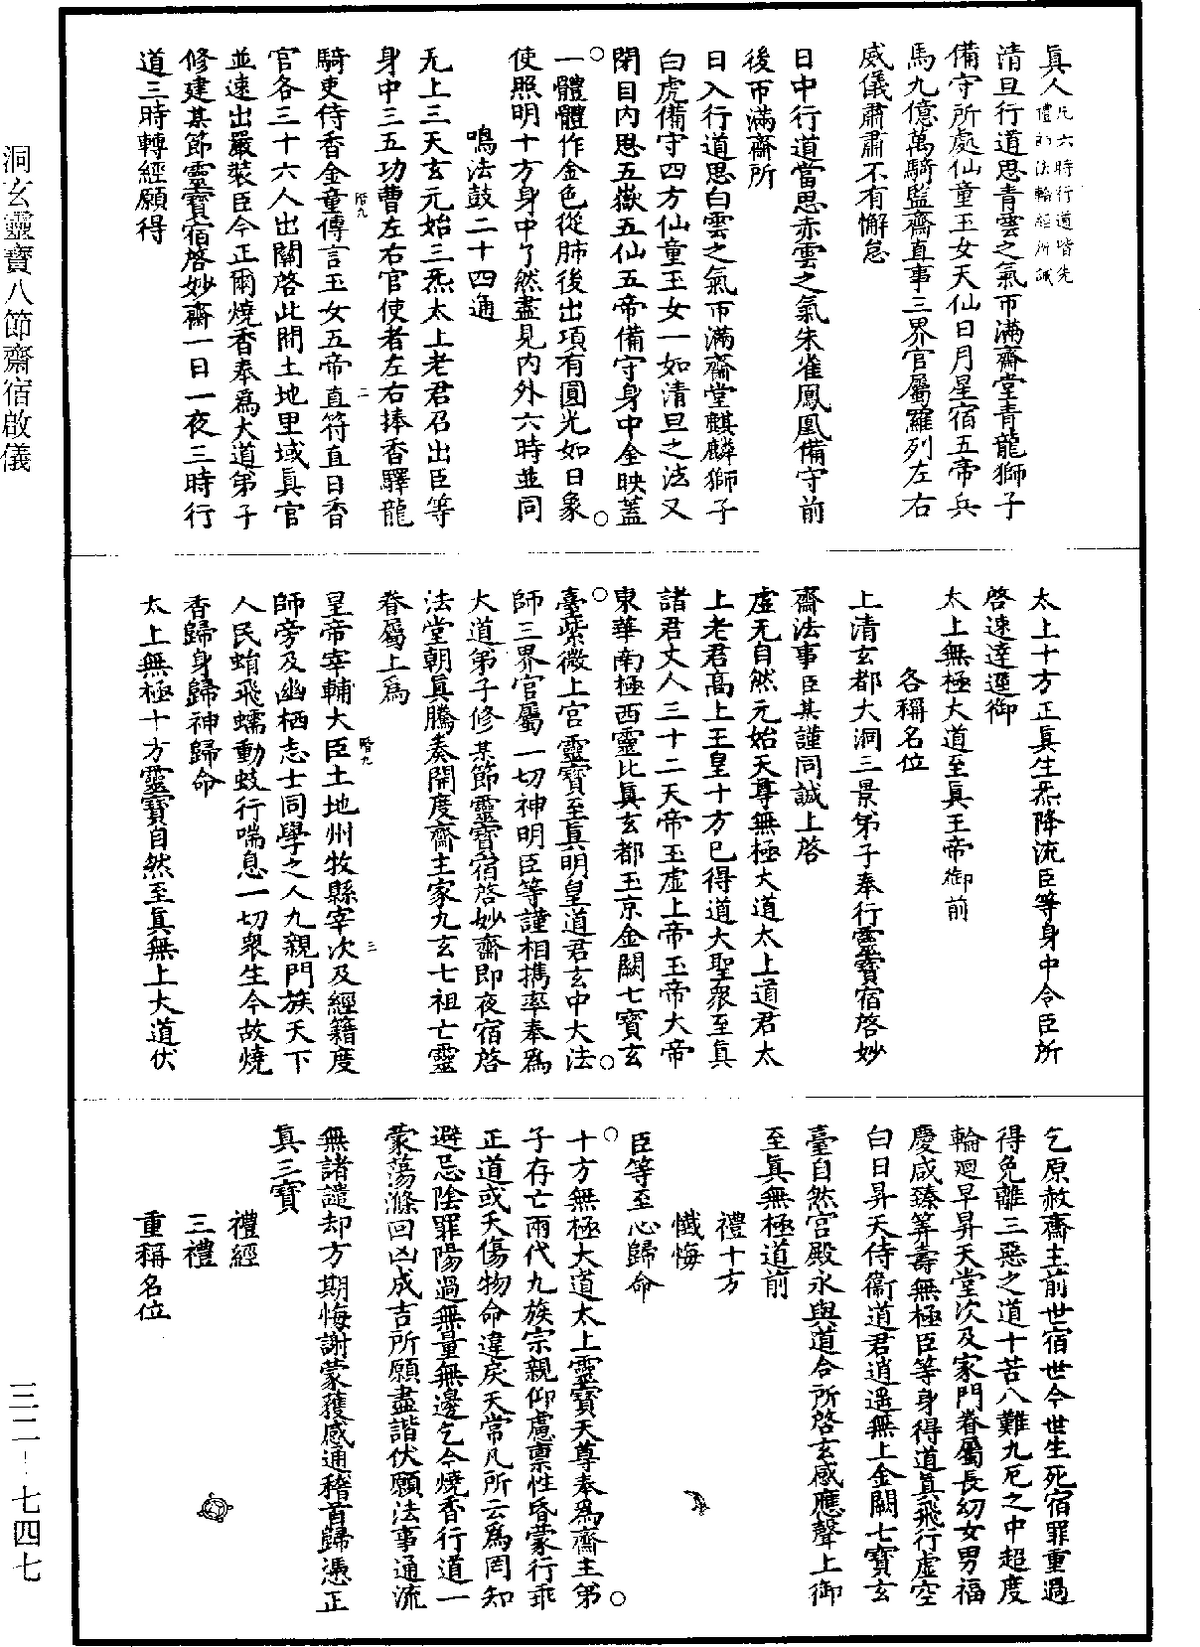 洞玄靈寶八節齋宿啟儀
三二－七四七
真人凡六時行道皆先禮師法輪經所誡
清旦行道思青雲之氣帀滿齋堂青龍獅子
備守所處仙童玉女天仙日月星宿五帝兵
馬九億萬騎監齋直事三界官屬羅列左右
威儀肅肅不有懈怠
日中行道當思赤雲之氣朱雀鳳凰備守前
後帀滿齋所
日入行道思白雲之氣帀滿齋堂麒麟獅子
白虎備守四方仙童玉女一如清旦之法又
閉目內思五嶽五仙五帝備守身中金映蓋
一體體作金色從肺後出項有圓光如日象
使照明十方身中了然盡見內外六時並同
鳴法鼓二十四通
无上三天玄元始三炁太上老君召出臣等
身中三五功曹左右官使者左右捧香驛龍
騎吏侍香金童傳言玉女五帝直符直日香
階九
二
官各三十六人出關啓此間土地里域真官
並速出嚴裝臣今正爾燒香奉爲大道弟子
修建某節靈寶宿啓妙齋一日一夜三時行
道三時轉經願得
太上十方正真生炁降流臣等身中令臣所
啓速達逕御
太上無極大道至真玉帝御前
各稱名位
上清玄都大洞三景弟子奉行靈寶宿啓妙
齋法事臣某謹同誠上啓
虛无自然元始天尊無極大道太上道君太
上老君高上玉皇十方已得道大聖衆至真
諸君丈人三十二天帝玉虛上帝玉帝大帝
東華南極西靈比真玄都玉京金闕七寶玄
臺紫微上宮靈寶至真明皇道君玄中大法
師三界官屬一切神明臣等謹相攜率奉爲
大道弟子修某節靈寶宿啓妙齋即夜宿啓
法堂朝真騰奏開度齋主家九玄七祖亡靈
眷屬上爲
皇帝宰輔大臣土地州牧縣宰次及經籍度
階九
三
師旁及幽栖志士同學之人九親門族天下
人民蛕飛蠕動蚑行喘息一切衆生今故燒
香歸身歸神歸命
太上無極十方靈寶自然至真無上大道伏
乞原赦齋主前世宿世今世生死宿罪重過
得免離三惡之道十苦八難九厄之中超度
輪迴早昇天堂次及家門眷屬長幼女男福
慶咸臻筭壽無極臣等身得道真飛行虛空
白日昇天侍衞道君逍遥無上金闕七寶玄
臺自然宮殿永與道合所啓玄感應聲上御
至真無極道前
禮十方
懺悔
臣等至心歸命
十方無極大道太上靈寶天尊奉爲齋主弟
子存亡兩代九族宗親仰慮禀性昏蒙行乖
正道或天傷物命違戾天常凡所云爲罔知
避忌陰罪陽過無量無邊乞今燒香行道一
蒙蕩滌回凶成吉所願盡諧伏願法事通流
無諸譴却方期悔謝蒙獲感通稽首歸憑正
真三寶
禮經
三禮
重稱名位